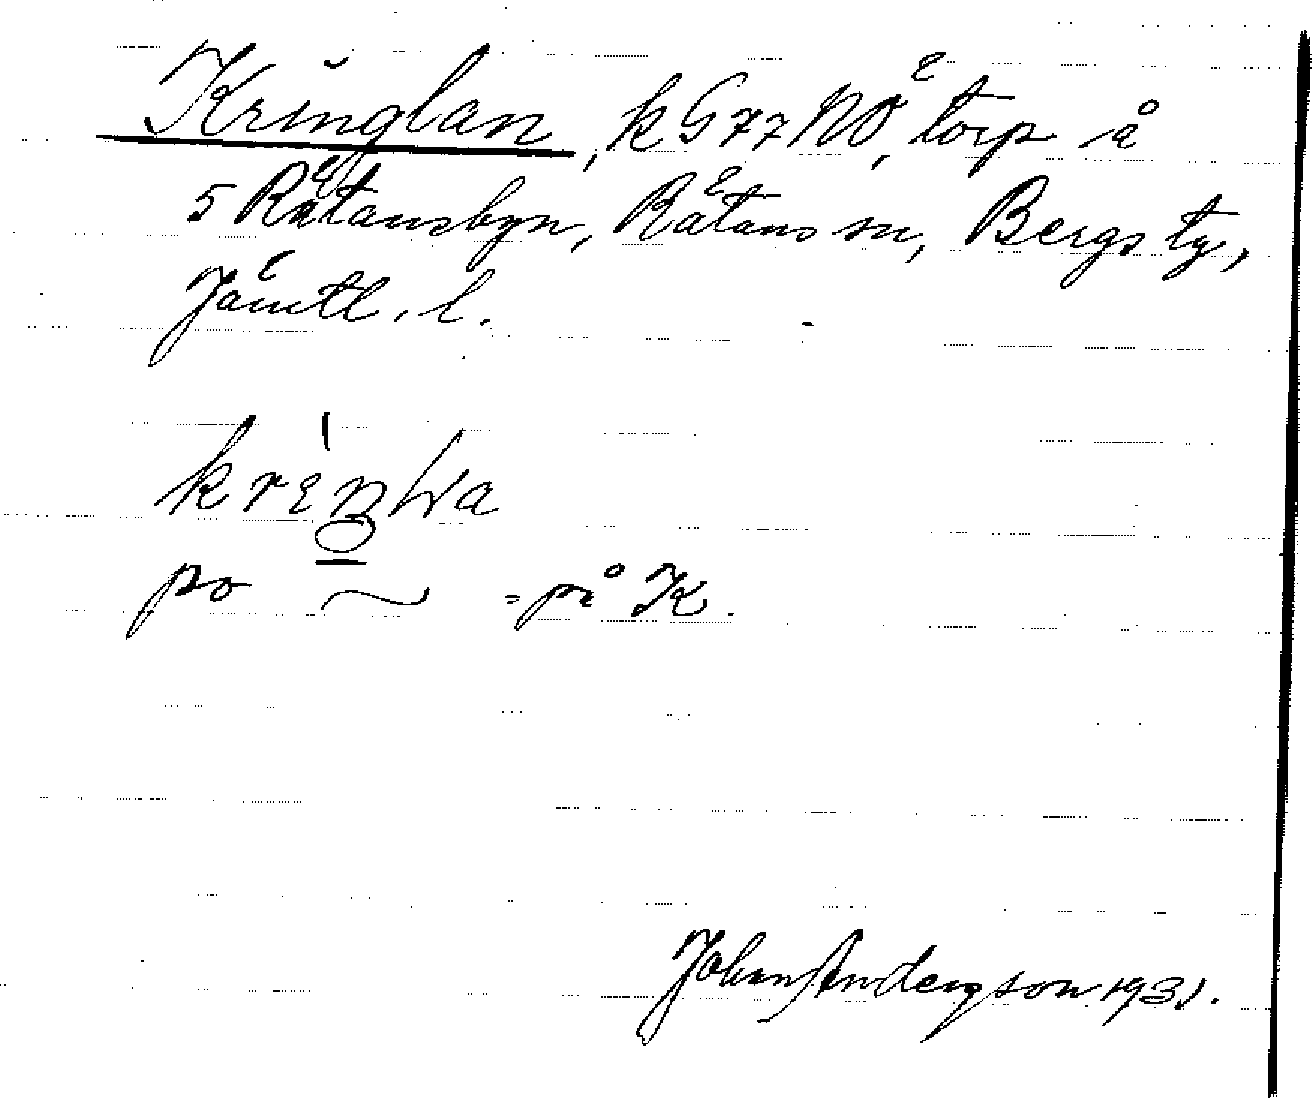 Kringlan, k G 77 NO, torp å
5 Rätansbyn, Rätans sn, Bergs tg,
Jämtl. l.
po ~ = på K.
John Anderson 1931.